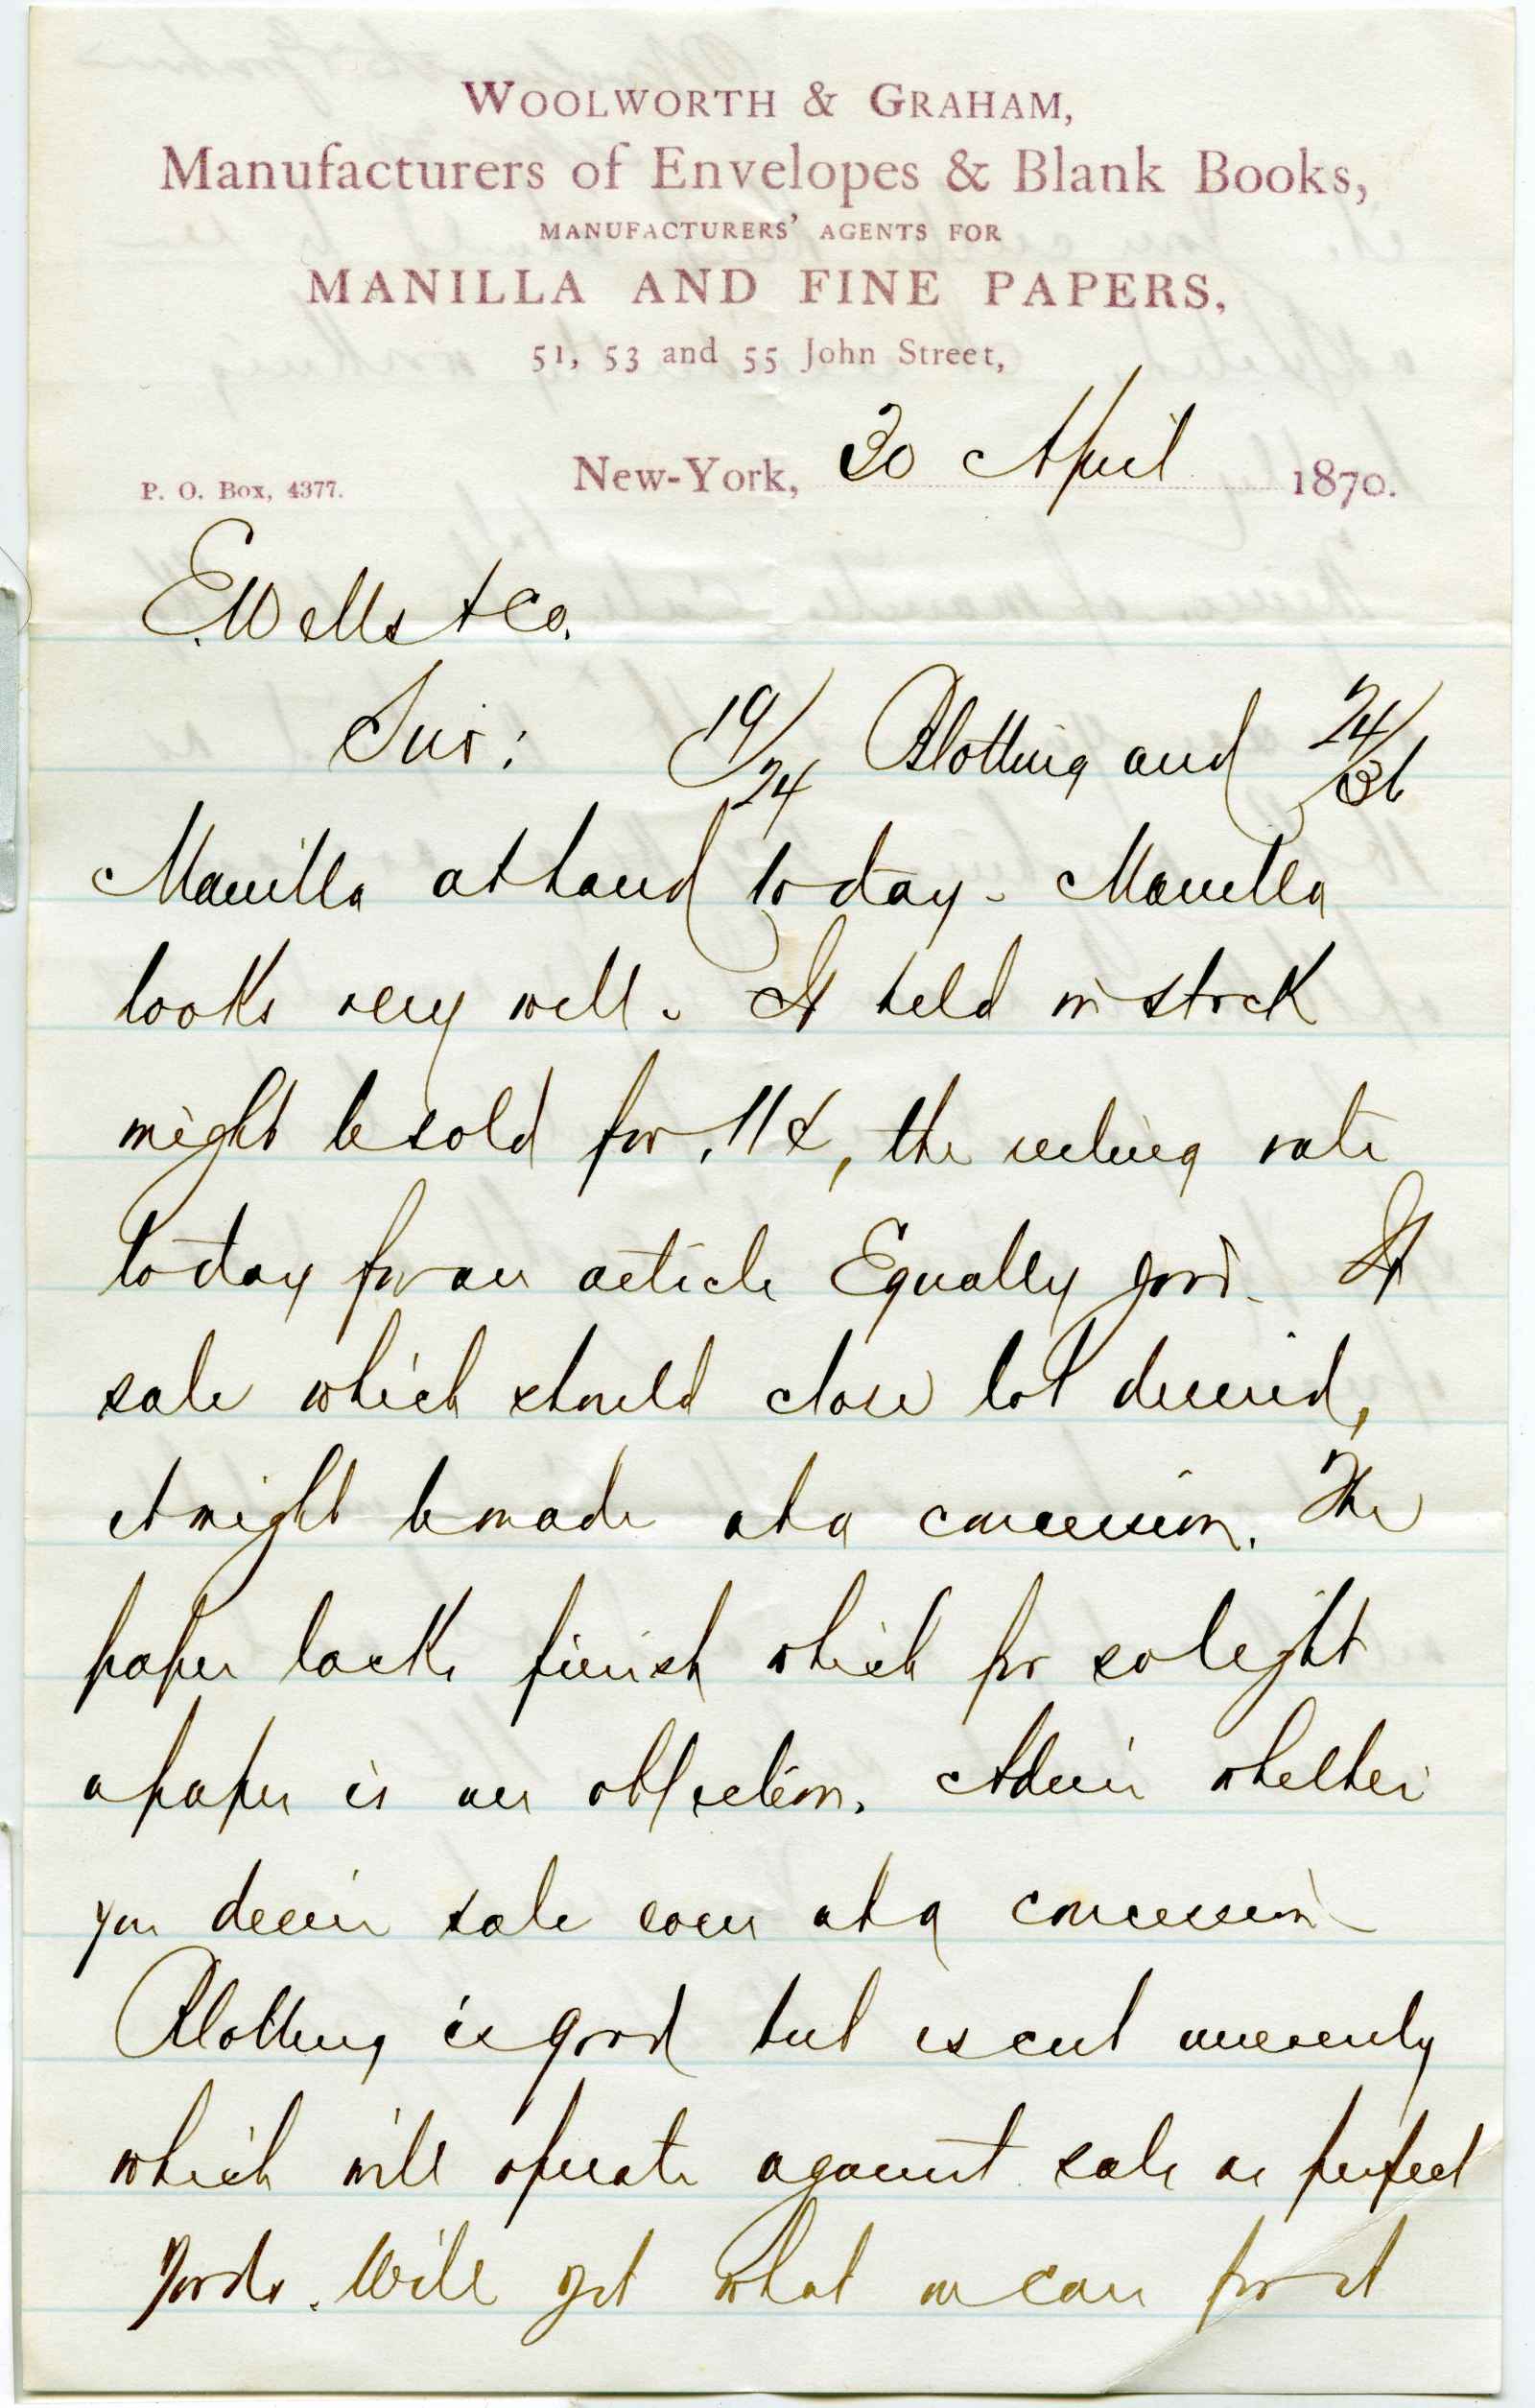 WOOLWORTH & GRAHAM,
Manufacturers of Envelopes & Blank Books,
MANUFACTURERS' AGENTS FOR
MANILLA AND FINE PAPERS,
51, 53 and 55 John Street,
P. O. Box, 4377. New-York, 30 April 1870.
E. Wells & Co.
Sirs: 19/24 Blotting and 24/36
Manilla at hand today. Manilla
looks very well. If held in stock
might be sold for .11¢, the ruling rate
today for an article Equally good. If
sale which should close lot desired,
it might be made at a concession. The
paper lacks finish which for so light
a paper is an objection. Advise whether
you desire sale even at a concession
Blotting is good but is cut unevenly
which will operate against sale as perfect
goods. Will get what we can for it